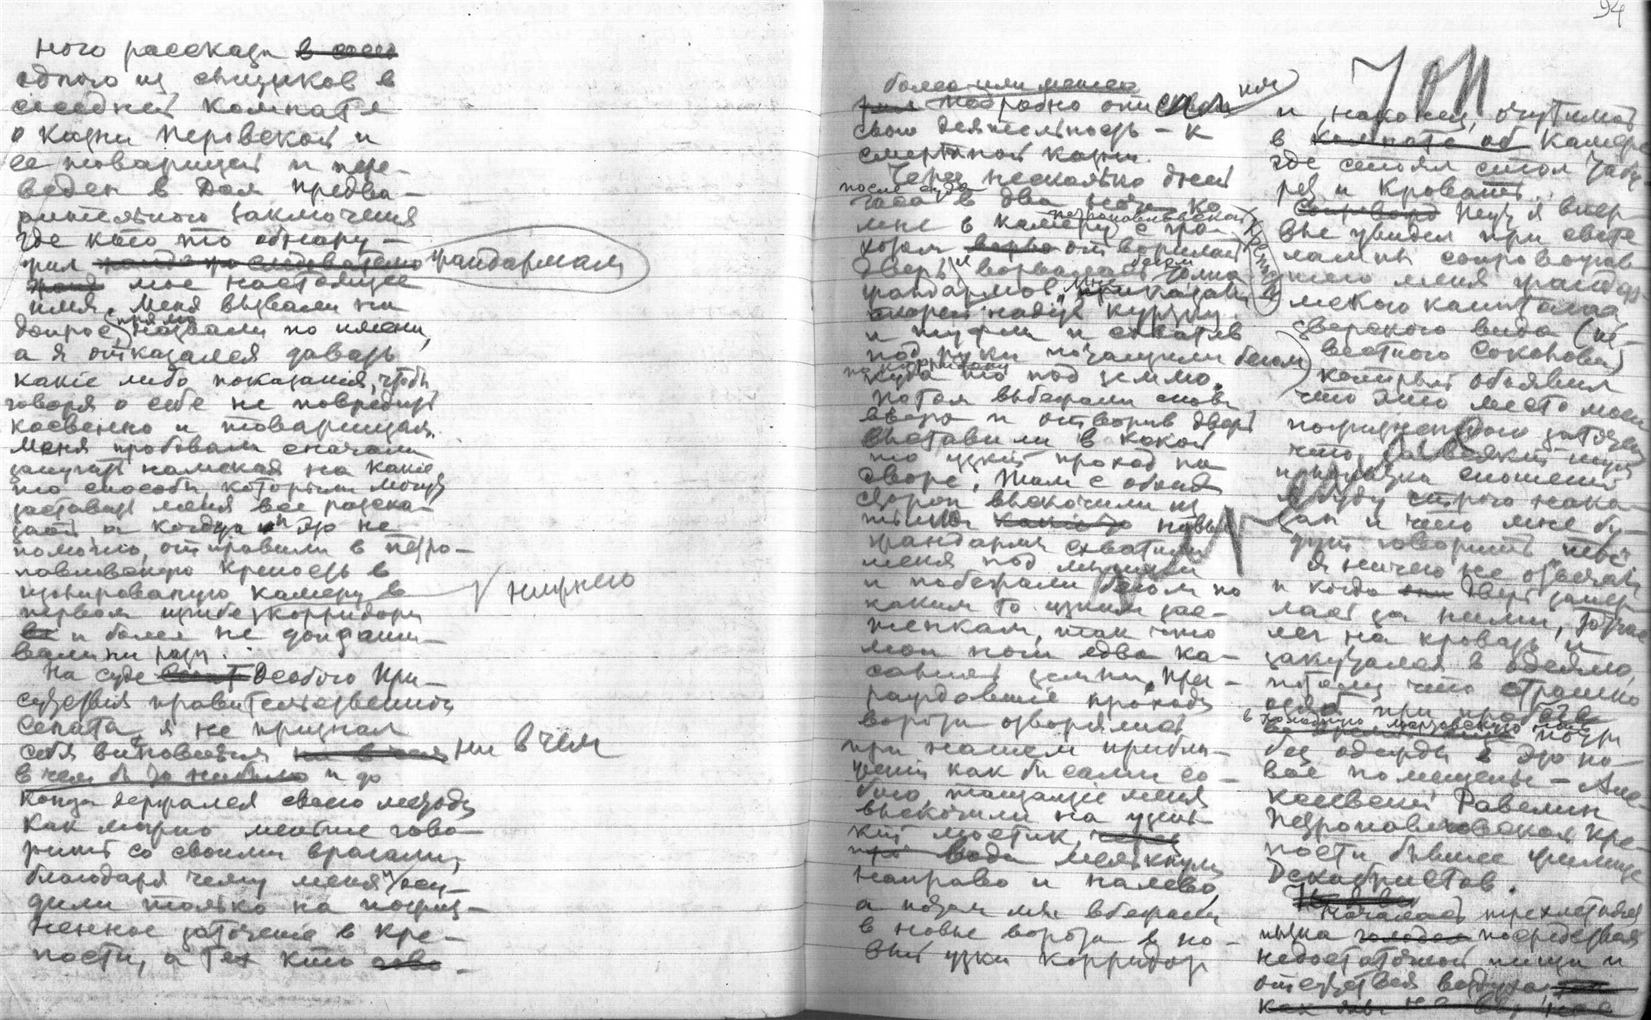 ного рассказа в соо
одного из сыщиков в
соседней комнате
о казни Перовской и
ее товарищей и пере-
веден в Дом предва-
рительного заключения
где кто то обнару-
жил жандармам
мое настоящее
имя. Меня вызвали на
допрос, прямо назвали по имени,
а я отказался давать
какие либо показания, чтобы
говоря о себе не повредить
косвенно и товарищам.
Меня пробовали сначала
запугать намекая на какие
то способы которыми могут
заставить меня все расска-
зать а когда и это не
помогло, отправили в Петро-
павловскую крепость в
изолированную камеру в
первом нижнего коридора
и более не допраши-
вали ни разу.
На суде Особого При-
сутствия правительствующего
сената я не признал
себя виновным ни в чем
в чем бы то ни было и до
конца держался своего метода
как можно меньше гово-
рить со своими врагами,
благодаря чему меня осу-
дили только на пожиз-
ненное заточение в кре-
пости, а тех кто
94
более или менее
подробно описал им
свою деятельность – к
смертной казни.
Через несколько дней
после суда часа в два ночи ко
мне в камеру Петропавловской крепости с гро-
хотом отворилась
дверь и ворвалась толпа
жандармов, мне приказали
скорей надеть куртку
и туфли и схватив
под руки потащили бегом
по коридору куда то под землю.
Потом выбежали снова
вверх и отворив дверь
выставили в какой
то узкий проход на
дворе. Там с обеих
сторон выскочили из
тьмы новые
жандармы схватили
меня под мышки
и побежали бегом по
каким то узким зас-
тенкам, так что
мои ноги едва ка-
сались земли. Прег-
раждавшие проходы
ворота отворялись
при нашем прибли-
жении как бы сами со-
бою тащащие меня
выскочили на узень-
кий мостик,
вода мелькнула
направо и налево
а потом мы вбежали
в новые ворота в но-
вый узкий коридор
и, наконец, очутились
в комнате об камере
где стоял стол табу-
рет и кровать.
Тут я впер-
вые увидел при свете
лампы сопровождав-
шего меня жандар-
мского капитана
зверского вида (из-
вестного Соколова)
который объявил
что это место моего
пожизненного заточения
что за всякий шум
и попытки сношений
я буду строго нака-
зан и что мне бу-
дут говорить "ты"
Я ничего не отвечал
и когда дверь запер-
лась за ними, тотчас
лег на кровать и
закутался в одеяло,
потому что страшно
озяб при пробеге
в холодную мартовскую почти
без одежды в это но-
вое помещение – Але-
ксеевский Равелин
Петропавловской кре-
пости бывшее жилище
Декабристов.
Началась трехлетняя
пытка посредством
недостаточной пищи и
отсутствия воздуха